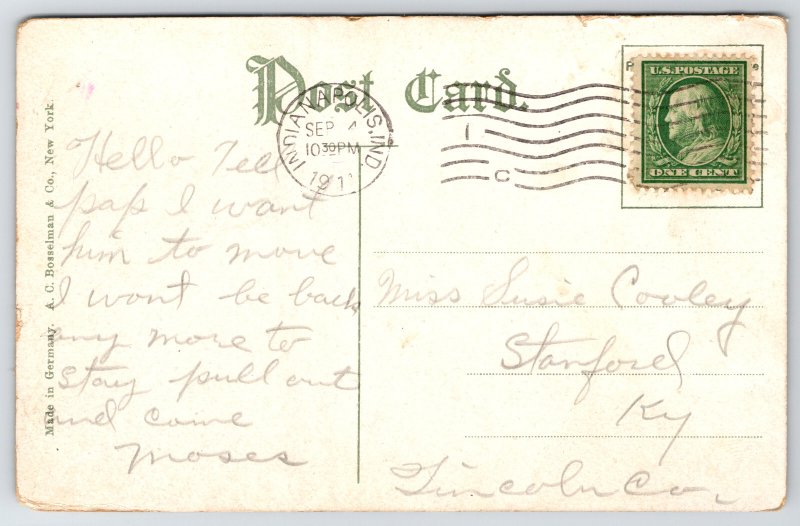 Post Card.
INDIANAPOLIS, IND
SEP 4
10 30 PM
1911
1
C
U.S. POSTAGE
ONE CENT
Made in Germany. A. C. Bosselman & Co., New York.
Hello Tell
pap I want
him to move
I wont be back
any more to
stay pull out
and come
Moses
Miss Susie Cooley
Stanford
Ky
Lincoln Co,